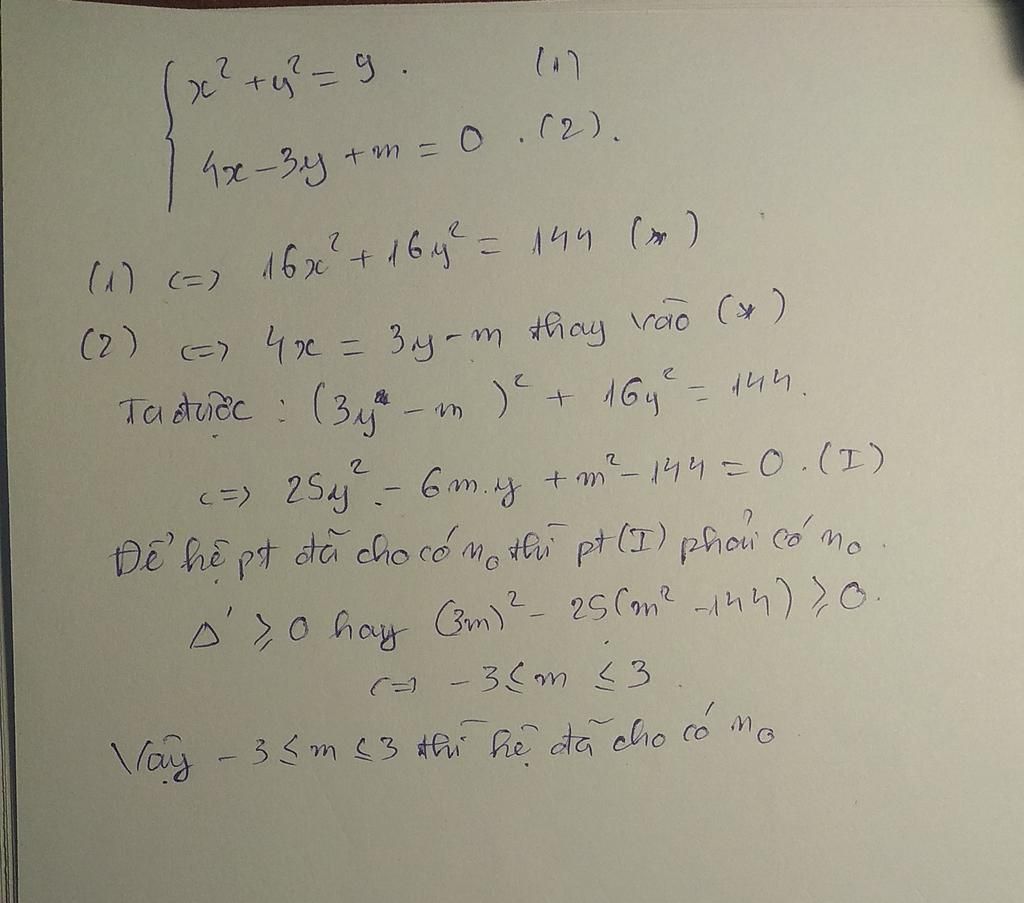 x² + y² = 9. (1)
4x - 3y + m = 0. (2).
(1) <=> 16x² + 16y² = 144 (*)
(2) <=> 4x = 3y - m thay vào (*)
Ta được : (3y - m)² + 16y² = 144.
<=> 25y² - 6m.y + m² - 144 = 0. (I)
Để hệ pt đã cho có n₀ thì pt (I) phải có n₀.
Δ' ≥ 0 hay (3m)² - 25(m² - 144) ≥ 0.
<=> -3 ≤ m ≤ 3.
Vậy -3 ≤ m ≤ 3 thì hệ đã cho có n₀